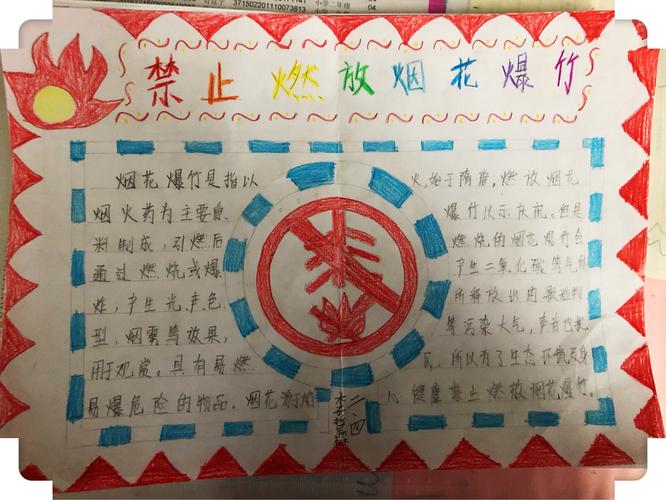 371502201110073813
04
小学二年级
04
禁止燃放烟花爆竹
烟花爆竹是指以
烟火药为主要原
料制成，引燃后
通过燃烧或爆
炸，产生光、声、色、
型、烟雾等效果，
用于观赏。具有易燃
易爆危险的物品。烟花源于焰
火，始于隋唐，燃放烟花
爆竹以示庆祝。但是
燃烧的烟花爆竹会
产生二氧化碳等气体
所释放出的颗粒物
等污染大气，声音也扰
民，所以为了生态环境及身
心健康禁止燃放烟花爆竹。
二、四